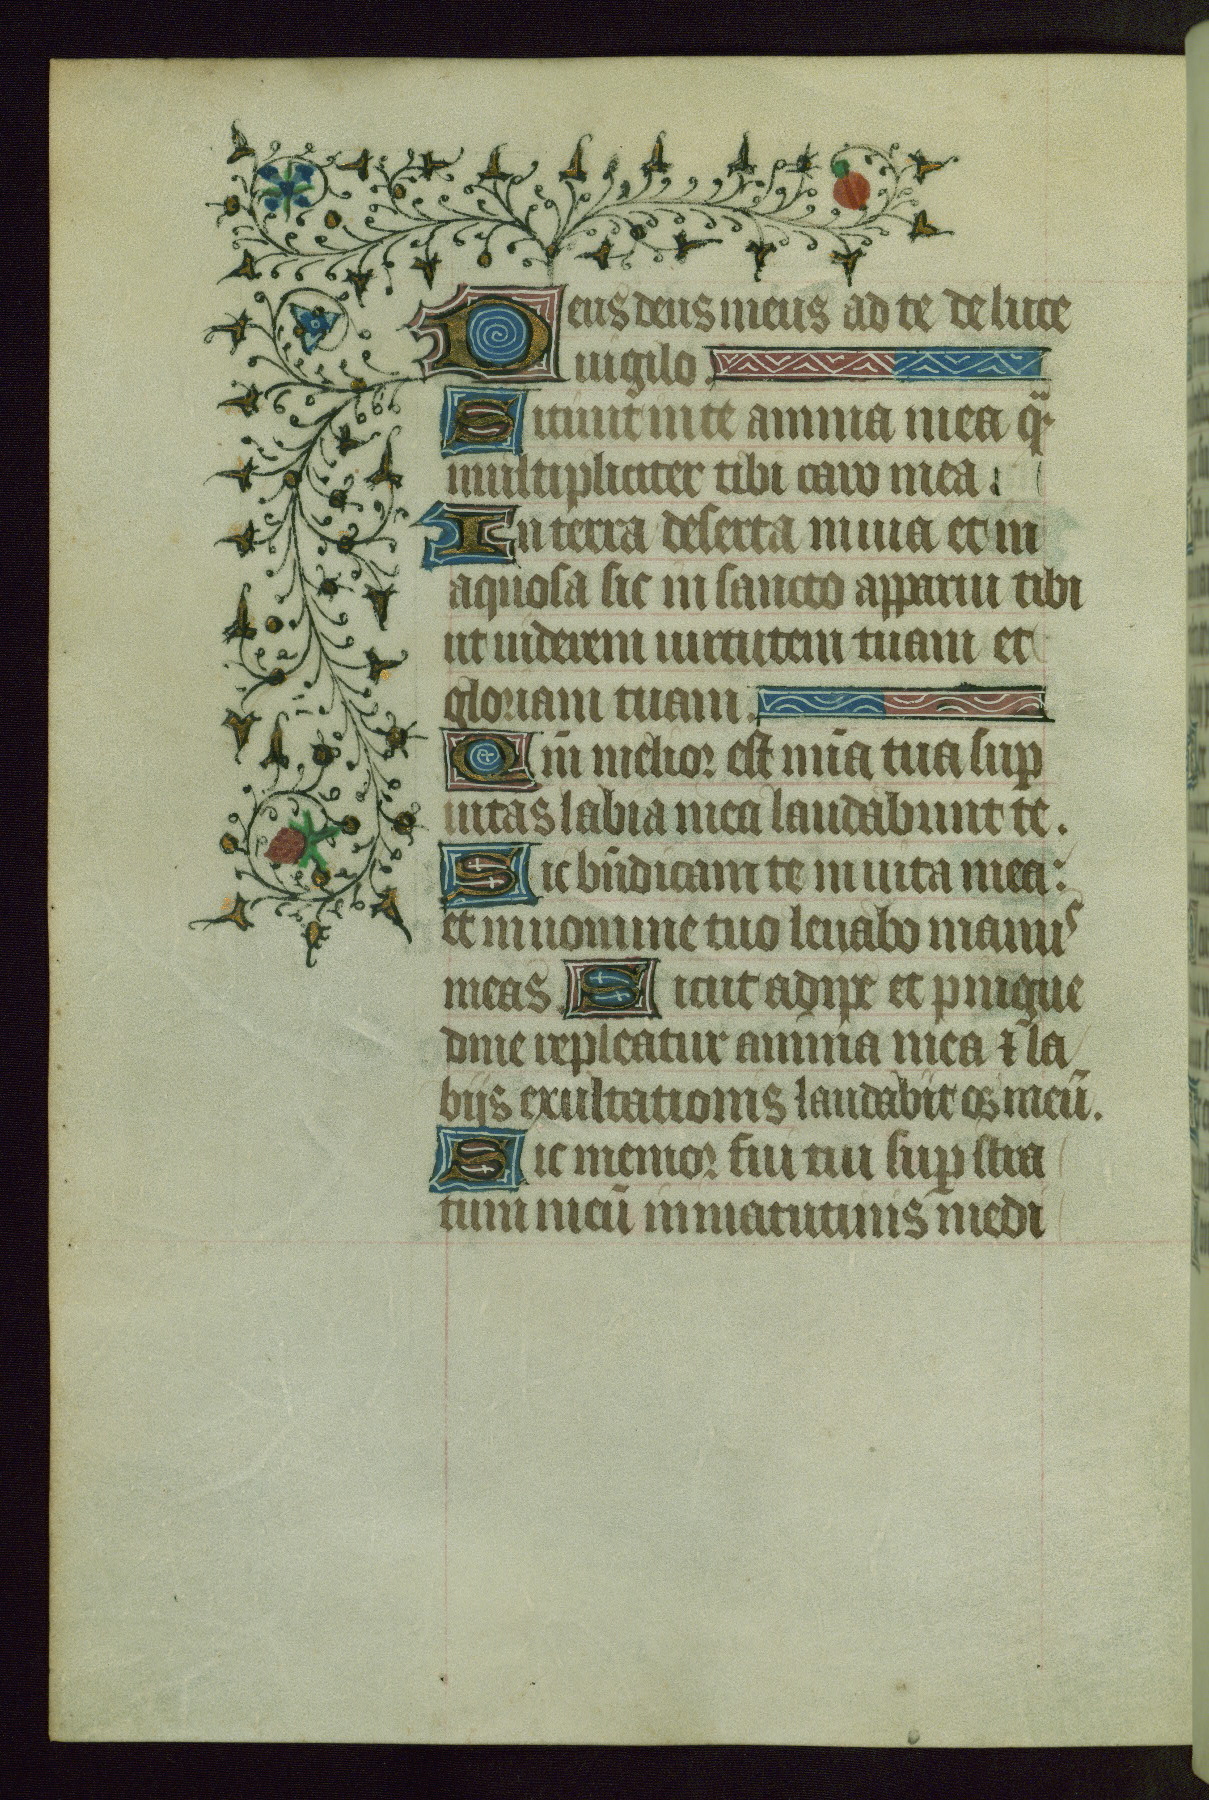 Deus deus meus ad te de luce
uigilo.
Sitiuit in te anima mea q̃
multipliciter tibi caro mea.
In terra deserta inuia et in
aquosa sic in sancto apparui tibi
ut uiderem uirtutem tuam et
gloriam tuam.
Qm̄ melior est mīa tua suꝑ
uitas labia mea laudabunt te.
Sic bn̄dicam te in uita mea:
et in nomine tuo leuabo manus
meas. Sicut adipe et pingue
dine repleatur anima mea ⁊ la
bijs exultationis laudabit os meū.
Sic memor fui tui suꝑ stra
tum meū in matutinis medi